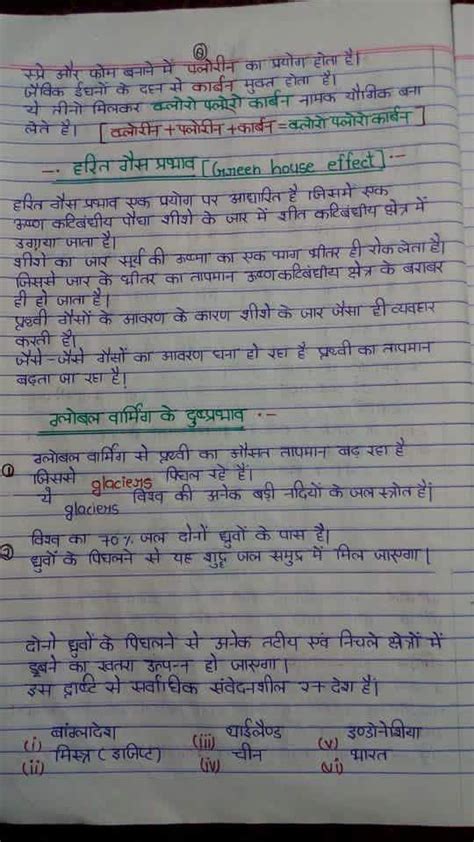 ⑥
स्प्रे और फोम बनाने में फ्लोरीन का प्रयोग होता है।
जैविक ईंधनों के दहन से कार्बन मुक्त होता है।
ये तीनो मिलकर क्लोरो फ्लोरो कार्बन नामक यौगिक बना
लेते है। [क्लोरीन + फ्लोरीन + कार्बन = क्लोरो फ्लोरो कार्बन]
हरित गैस प्रभाव [Green house effect] :-
हरित गैस प्रभाव एक प्रयोग पर आधारित है जिसमे एक
ऊष्ण कटिबंधीय पौधा शीशे के जार में शीत कटिबंधीय क्षेत्र में
उगाया जाता है।
शीशे का जार सूर्य की ऊष्मा का एक भाग भीतर ही रोक लेता है।
जिससे जार के भीतर का तापमान ऊष्ण कटिबंधीय क्षेत्र के बराबर
ही हो जाता है।
पृथ्वी गैसों के आवरण के कारण शीशे के जार जैसा ही व्यवहार
करती है।
जैसे-जैसे गैसों का आवरण घना हो रहा है पृथ्वी का तापमान
बढ़ता जा रहा है।
ग्लोबल वार्मिंग के दुष्प्रभाव :-
① ग्लोबल वार्मिंग से पृथ्वी का औसत तापमान बढ़ रहा है
जिससे glaciers पिघल रहे हैं।
ये glaciers विश्व की अनेक बड़ी नदियों के जल स्त्रोत हैं।
② विश्व का 70% जल दोनों ध्रुवों के पास है।
ध्रुवों के पिघलने से यह शुद्ध जल समुद्र में मिल जाएगा।
दोनो ध्रुवों के पिघलने से अनेक तटीय एवं निचले क्षेत्रों में
डूबने का खतरा उत्पन्न हो जाएगा।
इस दृष्टि से सर्वाधिक संवेदनशील 27 देश हैं।
(i) बांग्लादेश (iii) थाईलैण्ड (v) इण्डोनेशिया
(ii) मिस्त्र (इजिप्ट) (iv) चीन (vi) भारत